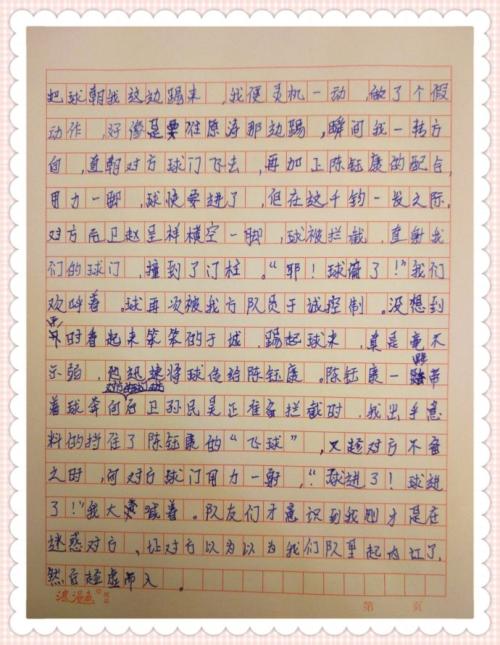 把球朝我这边踢来，我便灵机一动，做了个假
动作，好像是要往原涛那边踢，瞬间我一转方
向，直朝对方球门飞去，再加上陈钰康的配合，
用力一脚，球快要进了，但在这千钧一发之际，
对方后卫赵呈祥横空一脚，球被拦截，直射我
们的球门，撞到了门柱。“耶！球偏了！”我们
欢呼着。球再次被我方队员于诚控制。没想到
平时看起来笨笨的于诚，踢起球来，真是毫不
示弱，迅速将球传给陈钰康。陈钰康一路带
着球奔向对方球门后卫孙民昊正准备拦截时，我出乎意
料的挡住了陈钰康的“飞球”，又趁对方不备
之时，向对方球门用力一射，“球进了！球进
了！”我大喊着。队友们才意识到我刚才是在
迷惑对方，让对方以为以为我们队里起内讧了，
然后趁虚而入。
浪漫鱼
第 页